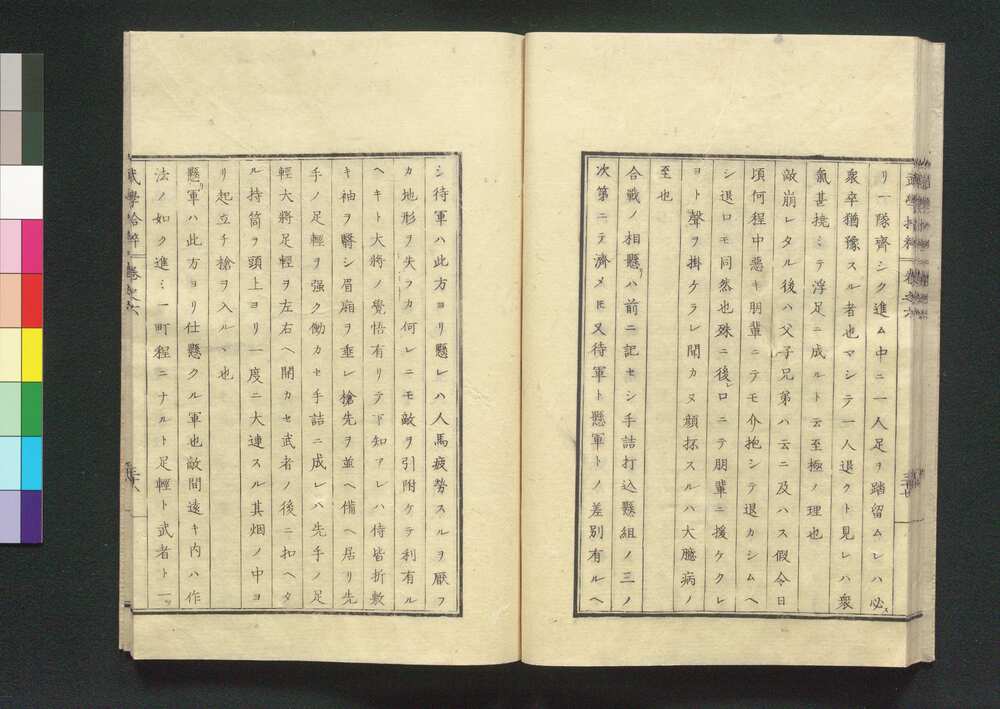 リ一隊齊シク進ム中ニ一人足ヲ踏留ムレハ必ス
衆卒猶豫スル者也マシテ一人退クト見レハ衆
氣甚撓ミテ浮足ニ成ルト云至極ノ理也
敵崩レタル後ハ父子兄弟ハ云ニ及ハス假令日
頃何程中惡キ朋輩ニテモ介抱シテ退カシムヘ
シ退口モ同然也殊ニ後レ口ニテ朋輩ニ援ケクレ
ヨト聲ヲ掛ケラレ聞カヌ顔抔スルハ大臆病ノ
至也
合戰ノ相懸リハ前ニ記セシ手詰打込懸組ノ三ノ
次第ニテ濟メ𪜈又待軍ト懸軍トノ差別有ルヘ
シ待軍ハ此方ヨリ懸レハ人馬疲勞スルヲ厭フ
カ地形ヲ失フカ何レニモ敵ヲ引附ケテ利有ル
ヘキト大將ノ覺悟有リテ下知アレハ侍皆折敷
キ袖ヲ翳シ眉廂ヲ垂レ槍先ヲ並ヘ備ヘ居リ先
手ノ足輕ヲ强ク働カセ手詰ニ成レハ先手ノ足
輕大將足輕ヲ左右ヘ開カセ武者ノ後ニ扣ヘタ
ル持筒ヲ頭上ヨリ一度ニ大連スル其烟ノ中ヨ
リ起立チ槍ヲ入ルヽ也
懸リ軍ハ此方ヨリ仕懸クル軍也敵間遠キ内ハ作
法ノ如ク進ミ一町程ニナルト足輕ト武者ト一ツ
武學拾粹 卷之六